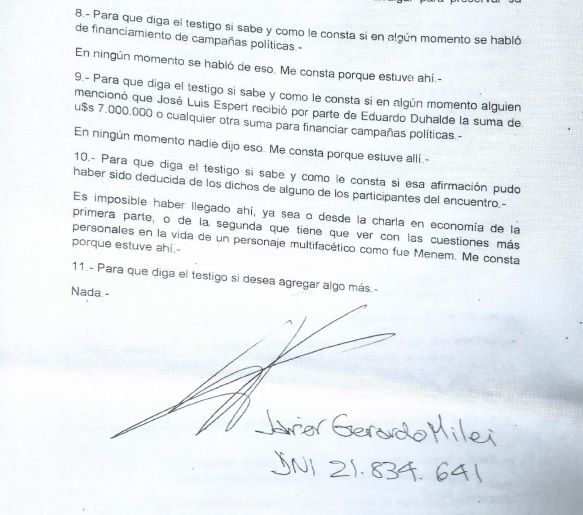 8.- Para que diga el testigo si sabe y como le consta si en algún momento se habló
de financiamiento de campañas políticas.-
En ningún momento se habló de eso. Me consta porque estuve ahí.-
9.- Para que diga el testigo si sabe y como le consta si en algún momento alguien
mencionó que José Luis Espert recibió por parte de Eduardo Duhalde la suma de
u$s 7.000.000 o cualquier otra suma para financiar campañas políticas.-
En ningún momento nadie dijo eso. Me consta porque estuve allí.-
10.- Para que diga el testigo si sabe y como le consta si esa afirmación pudo
haber sido deducida de los dichos de alguno de los participantes del encuentro.-
Es imposible haber llegado ahí, ya sea o desde la charla en economía de la
primera parte, o de la segunda que tiene que ver con las cuestiones más
personales en la vida de un personaje multifacético como fue Menem. Me consta
porque estuve ahí.-
11.- Para que diga el testigo si desea agregar algo más.-
Nada.-
Javier Gerardo Milei
DNI 21.834.641